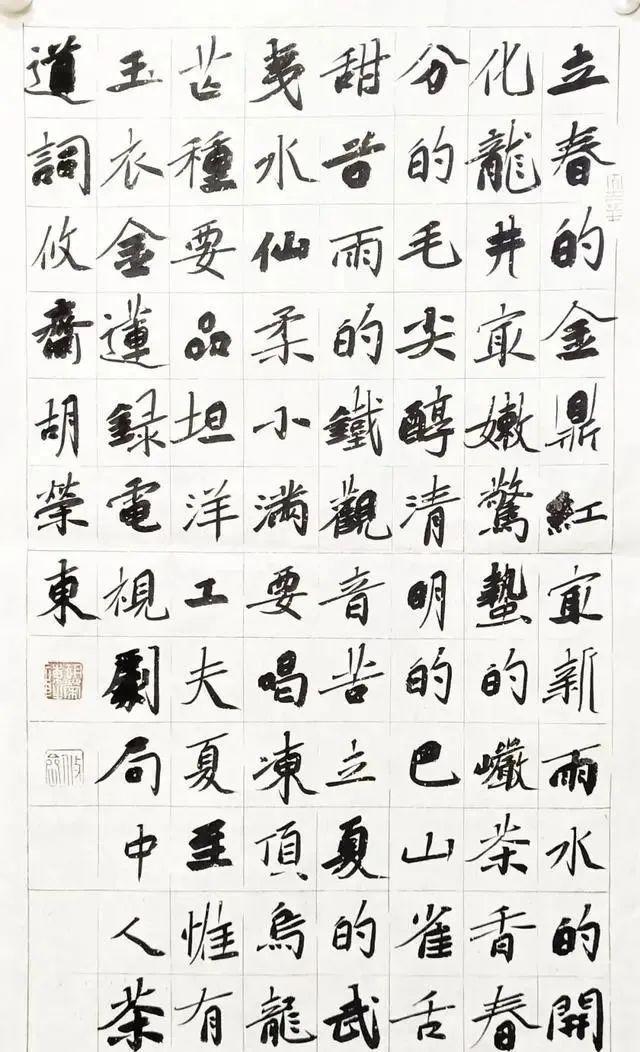 立春的金鼎紅冣新雨水的開
化龍井冣嫩驚蟄的巗茶香春
分的毛尖醇清明的巴山雀舌
甜谷雨的鐵觀音苦立夏的武
夷水仙柔小滿要喝凍頂烏龍
芒種要品坦洋工夫夏至惟有
玉衣金蓮録電視劇局中人茶
道詞攸齋胡榮東